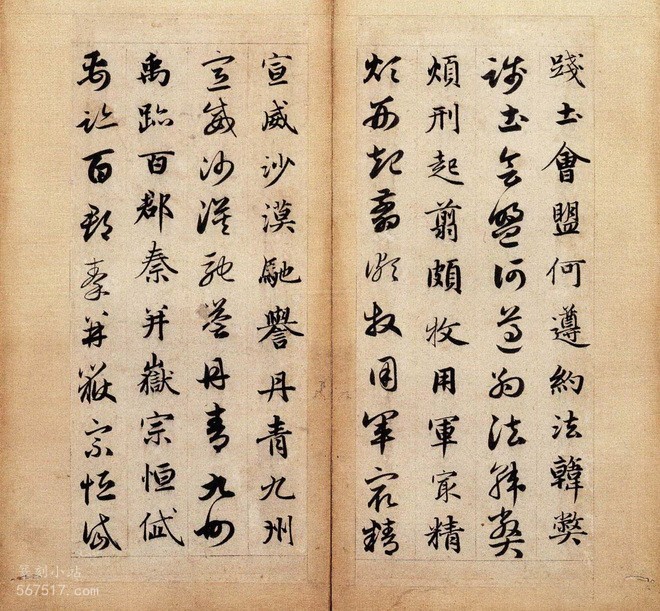 踐土會盟何遵約法韓弊
踐土會盟何遵約法韓弊
煩刑起翦頗牧用軍冣精
煩刑起翦頗牧用軍冣精
宣威沙漠馳譽丹青九州
宣威沙漠馳譽丹青九州
禹跡百郡秦并嶽宗恒岱
禹跡百郡秦并嶽宗恒岱
篆刻小站
567517.com